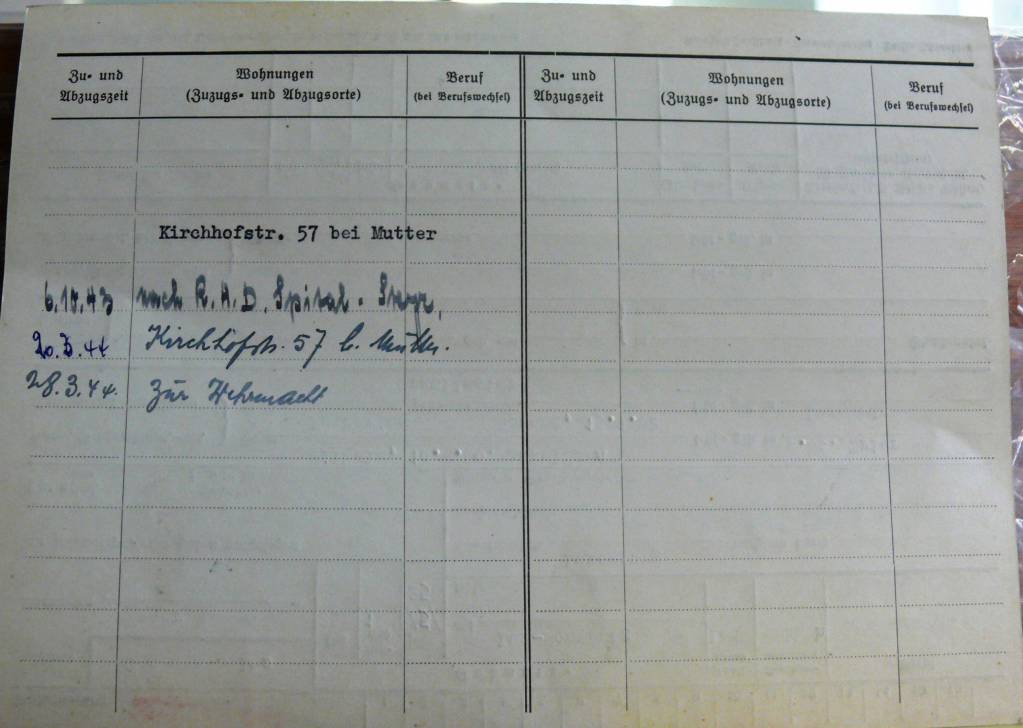 Zu- und Abzugszeit
Wohnungen
(Zuzugs- und Abzugsorte)
Beruf
(bei Berufswechsel)
Zu- und Abzugszeit
Wohnungen
(Zuzugs- und Abzugsorte)
Beruf
(bei Berufswechsel)
Kirchhofstr. 57 bei Mutter
6.10.43 nach R.A.D. Spital - Steyr,
20.3.44 Kirchhofstr. 57 b. Mutter.
28.3.44. Zur Wehrmacht